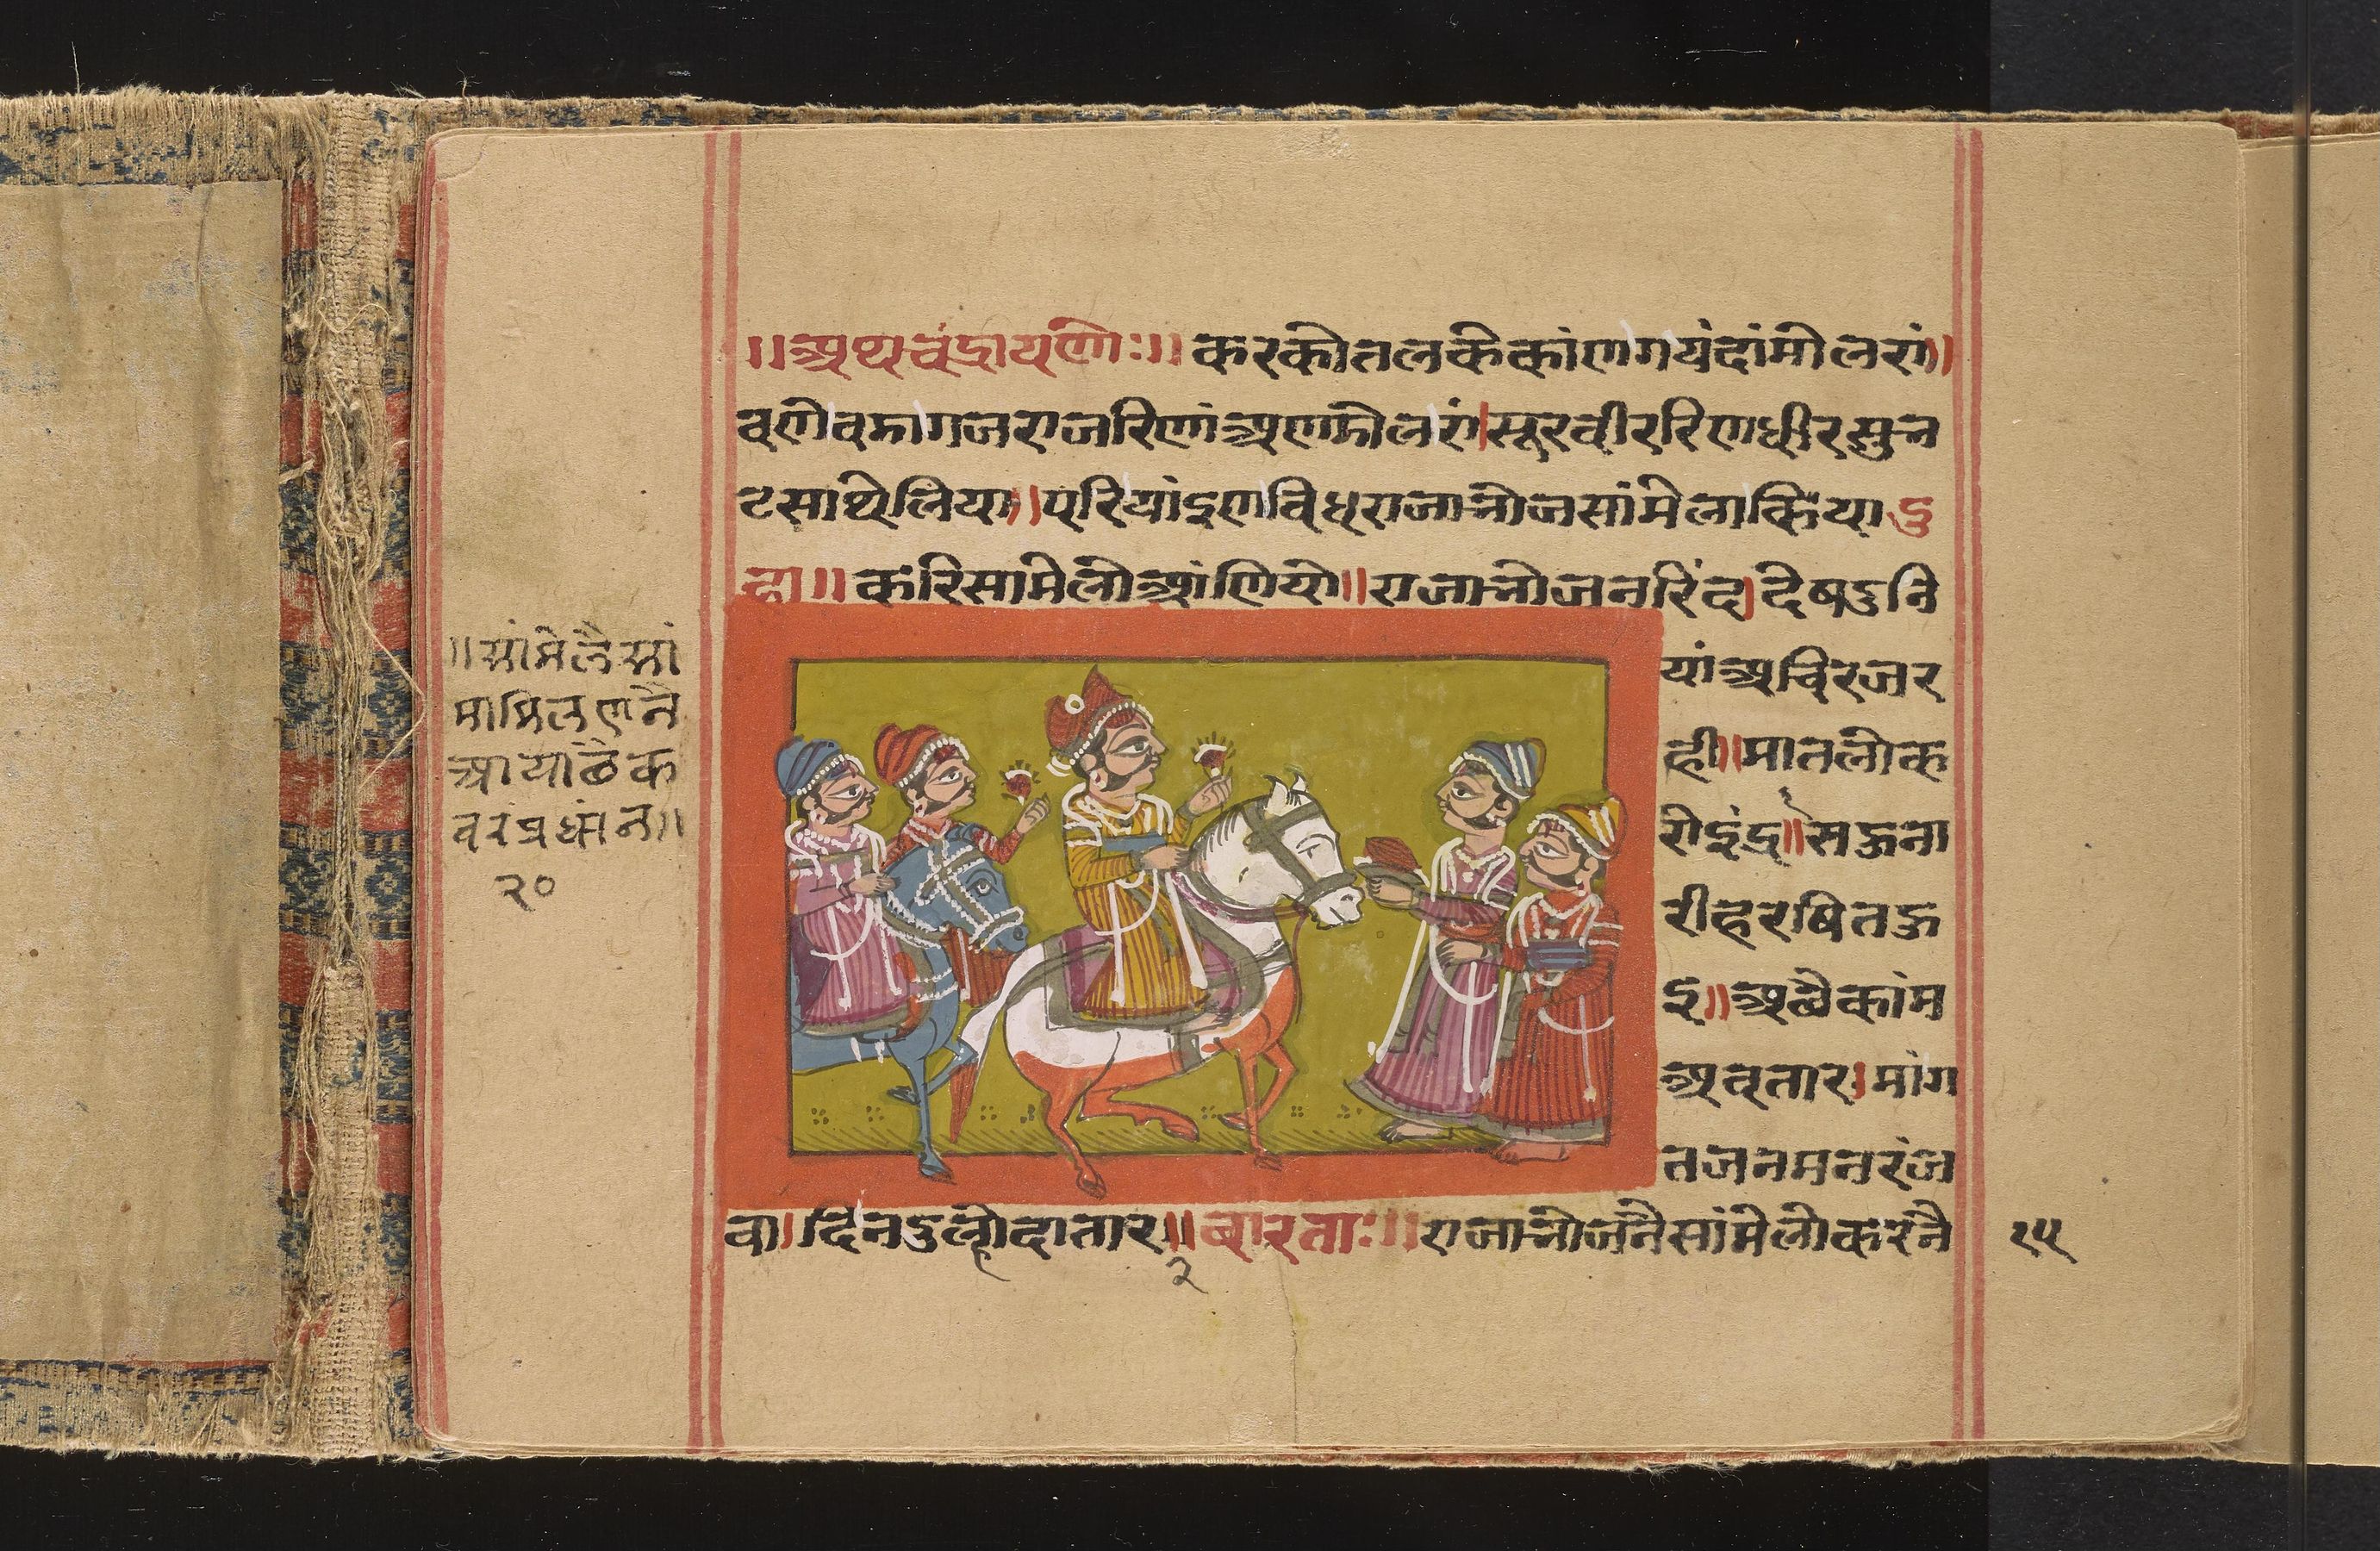 ॥अथ चंद्रायणेः॥ करकीतलकैकांणगयंदांमीलरां॥
वणेवमागजराजरिणांअणफीलरां।सूरवीररिणधीरसुभ
टसाथेलिया॥परियांइणविधराजाभोजसांमेलाकिया॥दु
हा॥ करिसामेलोआंणियो॥राजाभोजनरिंद।देषदुनि
यांअचिरजर
ही॥मातलोक
रोइंद्र॥सऊना
रीहरषितऊ
इ॥अछैकांम
अवतार।मांग
तजनमनरंज
वा।दिनदुल्होदातार॥२॥बारताः॥राजाभोजनैसांमेलोकरनै
॥सांमेलैसां
मामिलणनै
आयांछैक
वरप्रधांन॥
२०
१५